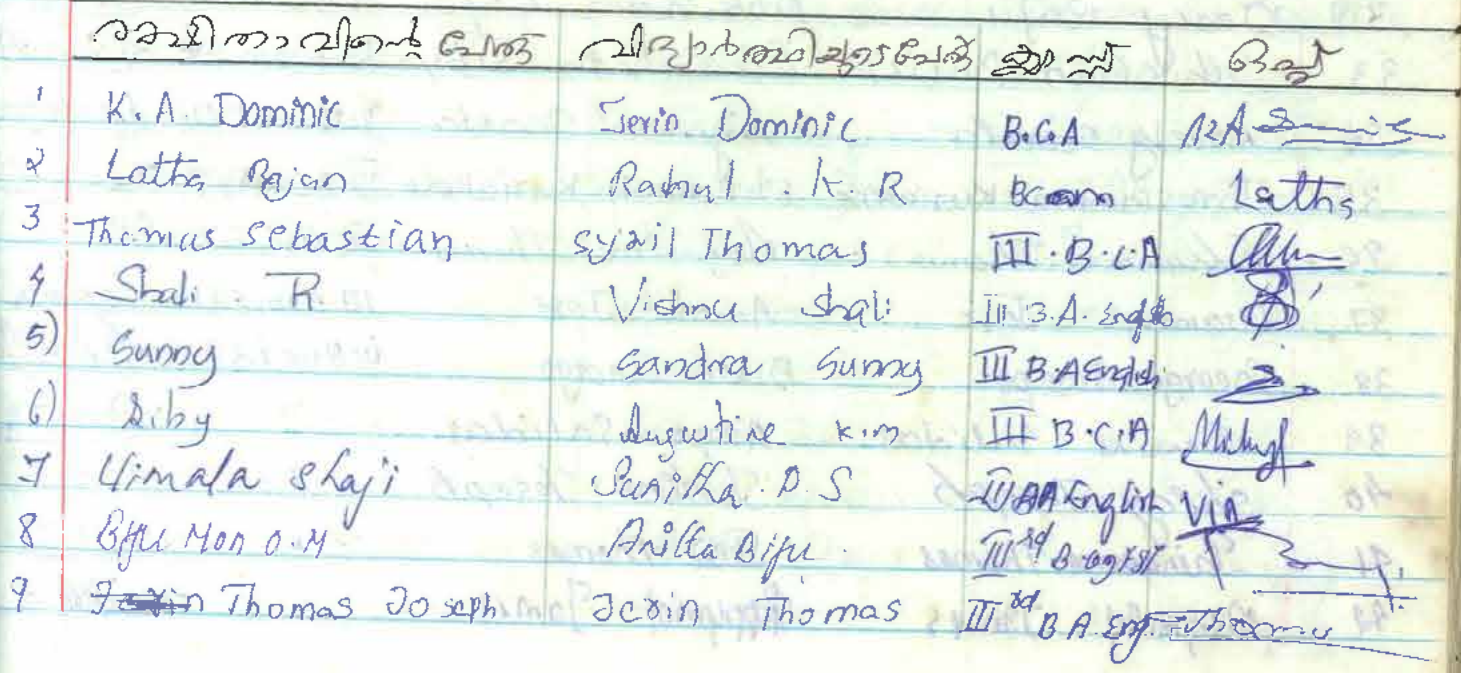 രക്ഷിതാവിന്റെ പേര് വിദ്യാർത്ഥിയുടെ പേര് ക്ലാസ്സ് ഒപ്പ്
1 K. A. Dominic Jerin Dominic B.C.A
2 Latha Rajan Rahul . K. R Bcom Latha
3 Thomas Sebastian Syril Thomas III . B . C A
4 Shali R Vishnu Shali III B.A. English
5) Sunny Sandra Sunny III B.A English
6) Siby Augustine K.M III B.C.A
7 Vimala Shaji Sunitha . P. S III BA English
8 Biju Mon O.M Anitta Biju . IIIrd
9 Thomas Joseph Jerin Thomas IIIrd B A. Eng.